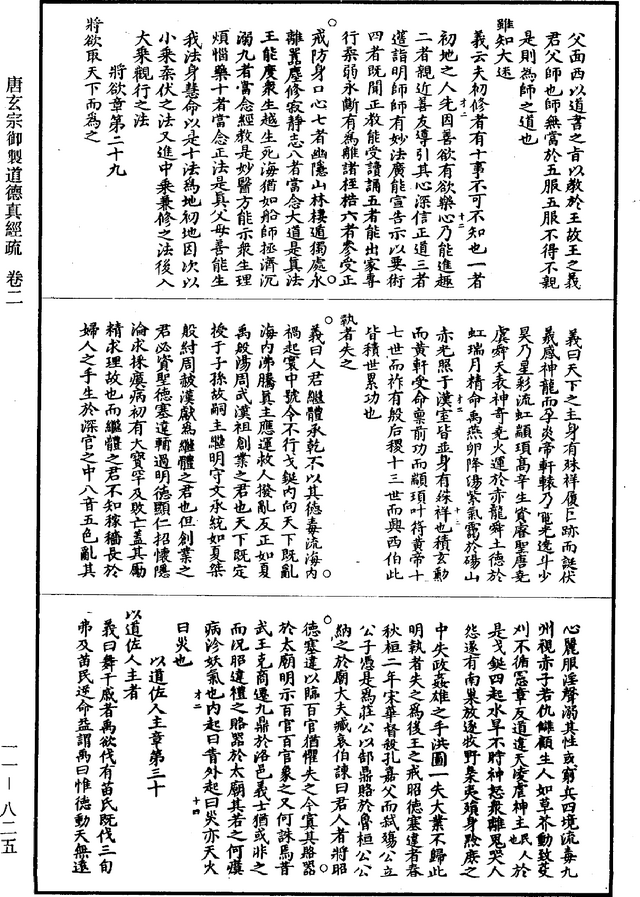 父面西以道書之言以教於王故王之義
君父師也師無當於五服五服不得不親
是則為師之道也
雖知大迷
義云夫初修者有十事不可不知也一者
初地之人先因善欲有欲樂心乃能進趣
二者親近善友導引其心深信正道三者
選詣明師師有妙法廣能宣告示以要術
四者既聞正教能受讀誦五者能出家專
行柔弱永斷有為離諸桎梏六者參受正
戒防身口心七者幽隱山林棲遁獨處永
離囂塵修寂靜志八者當念大道是真法
王能度衆生越生死海猶如船師拯濟沉
溺九者當念經教是妙醫方能示衆生理
煩惱藥十者當念正法是真父母善能生
我法身慧命以是十法為地初地因次以
小乘柰伏之法又進中乘兼修之法後入
大乘觀行之法
將欲章第二十九
將欲取天下而為之
義曰天下之主身有殊祥履巨跡而誕伏
羲感神龍而孕炎帝軒轅乃電光遶斗少
昊乃星彩流虹顓頊高辛生資睿聖唐堯
虞舜天表神奇堯火運於赤龍舜土德於
虹瑞月精命禹燕卯降湯紫氣靄於碭山
赤光照于漢室皆並身有殊祥也積玄勳
而黃軒受命稟前功而顓頊叶符黃帝十
七世而祚有殷后稷十三世而興西伯此
皆積世累功也
執者失之
義曰人君繼體承乾不以其德毒流海內
禍起寰中號令不行戈鋋內向天下既亂
海內沸騰真主應運救人撥亂反正如夏
禹殷湯周武漢祖創業之君也天下既定
授于子孫故嗣主繼明守文承統如夏桀
殷紂周赧漢獻為繼體之君也但創業之
君必資聖德塞違輔過明德顯仁招懷隱
淪求採瘼病初有大寶罕及敗亡蓋其勵
精求理故也而繼體之君不知稼穡長於
婦人之手生於深宮之中八音五色亂其
心麗服淫聲溺其性或窮兵四境流毒九
州視赤子若仇讎顧生人如草芥動致芟
刈不循憲章反道違天凌虐神主民人於
是戈鋋四起水旱不時神怒衆離鬼哭人
怨遂有南巢放逐牧野梟夷殞身黔庶之
中失政姦雄之手洪圖一失大業不歸此
明執者失之為後王之戒昭德塞違者春
秋桓二年宋華督殺孔嘉父而弒殤公立
公子憑是為莊公以郜鼎賂於魯桓公公
納之於廟大夫臧哀伯諫曰君人者將昭
德塞違以臨百官猶懼失之今寘其賂器
於太廟明示百官百官象之又何誅焉昔
武王克商遷九鼎於洛邑義士猶或非之
而況昭違禮之賂器於太廟其若之何瘼
病沴妖氣也內起曰眚外起曰災亦天火
曰災也
以道佐人主章第三十
以道佐人主者
義曰舞干戚者禹欲伐有苗氏既伐三旬
弗及苗民逆命益謂禹曰惟德動天無遠
唐玄宗御製道德真經疏 卷二
一一—八二五